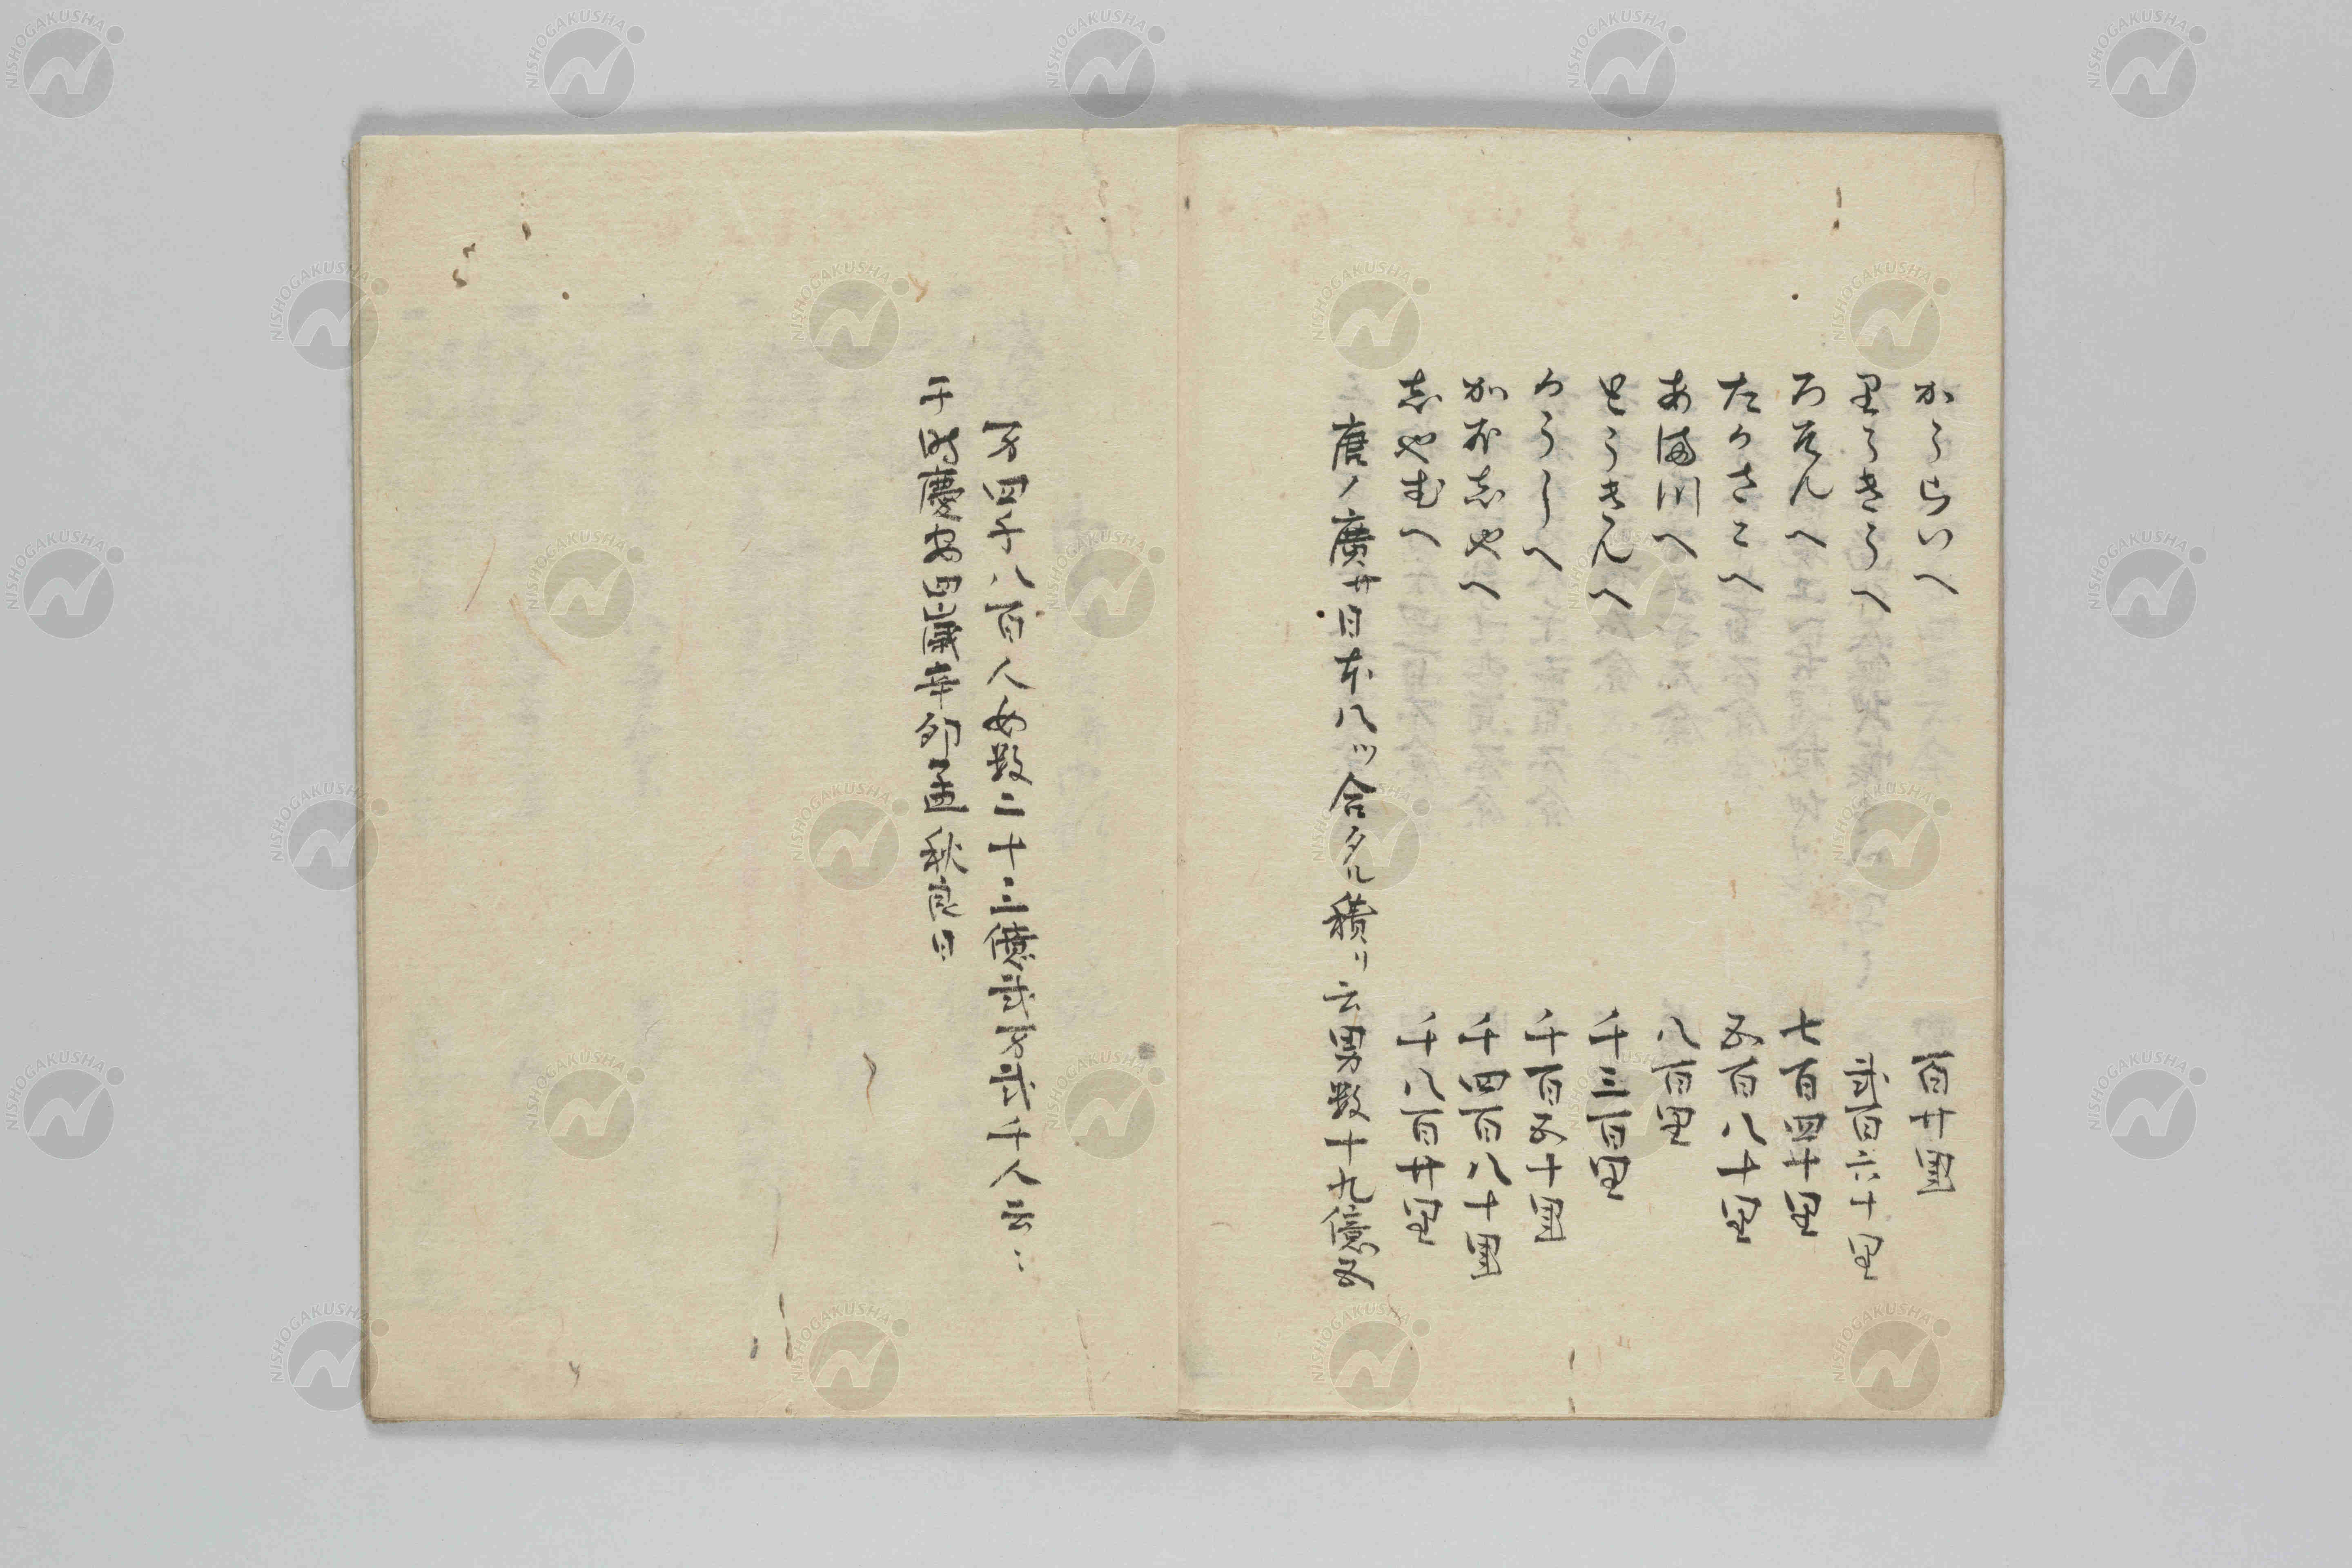 かららいへ 百廿里
里うきうへ 弐百六十里
ろそんへ 七百四十里
たかさこへ 五百八十里
あま川へ 八百里
とうきんへ 千三百里
かうしへ 千百五十里
かおしやへ 千四百八十里
志やむへ 千八百廿里
唐ノ廣サ日本八ツ合タル積リ云男数十九億又
万四千八百人女数二十三億弐万弐千人云々
于時慶安四歳辛卯孟秋良日
NISHOGAKUSHA